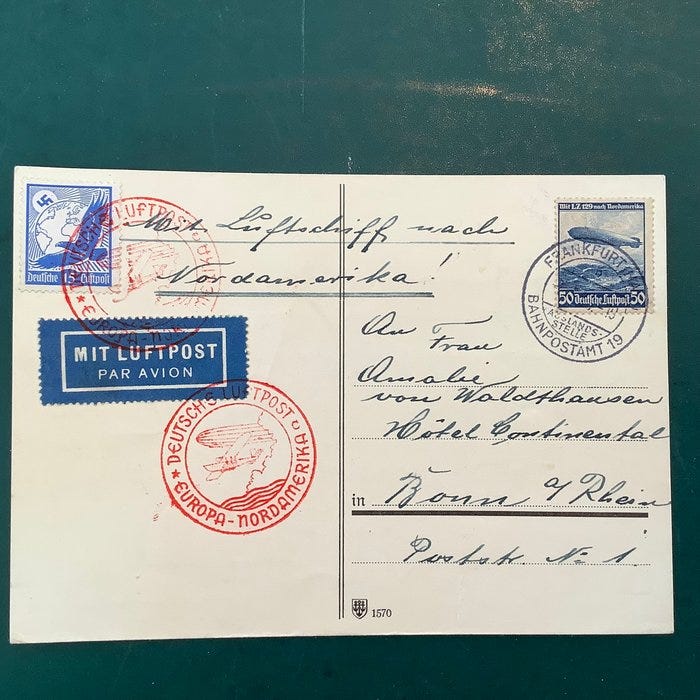 Mit Luftschiff nach
Nordamerika!
Deutsche 15 Luftpost
DEUTSCHE LUFTPOST
* EUROPA - NORDAMERIKA
MIT LUFTPOST
PAR AVION
DEUTSCHE LUFTPOST
* EUROPA - NORDAMERIKA
Mit L.Z. 129 nach Nordamerika
50 Deutsche Luftpost 50
FRANKFURT
AUSLANDS-
STELLE
BAHNPOSTAMT 19
An Frau
Amalie
von Waldthausen
Hôtel Continental
in Bonn a/Rhein
Poststr. No 1.
1570